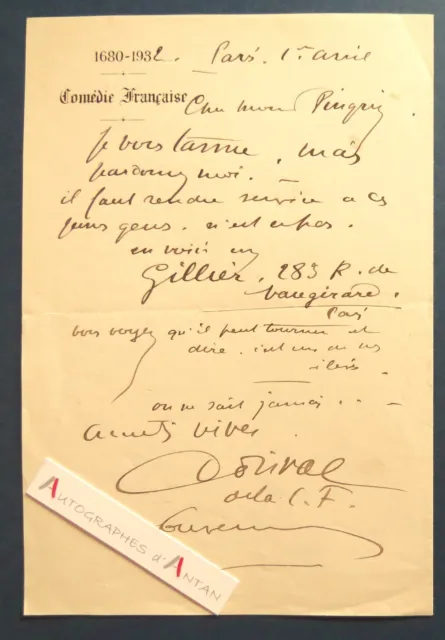 1680-1932. Paris. 1er Avril
Comédie Française
Cher Pingrin
je vous tanne, mais
pardonnez moi.
il faut rendre service a ces
jeunes gens. n'est ce pas.
en voici un
Gillier, 283 R. de
Vaugirard.
Paris
vous voyez qu'il peut tourner et
dire. c'est un de nos
on ne sait jamais...
Dorival
de la C. F.
AUTOGRAPHES d'ANTAN